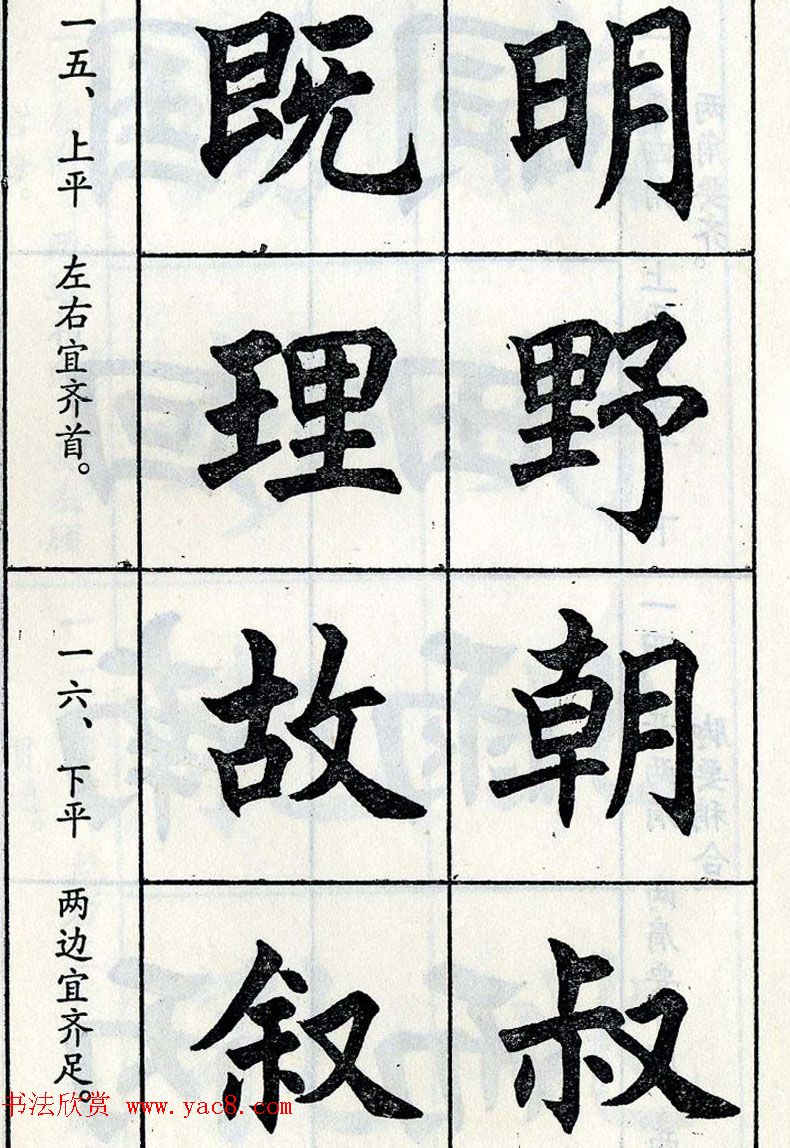 一五、上平 左右宜齐首。
既 明
理 野
一六、下平 两边宜齐足。
故 朝
叙 叔
书法欣赏 www.yac8.com